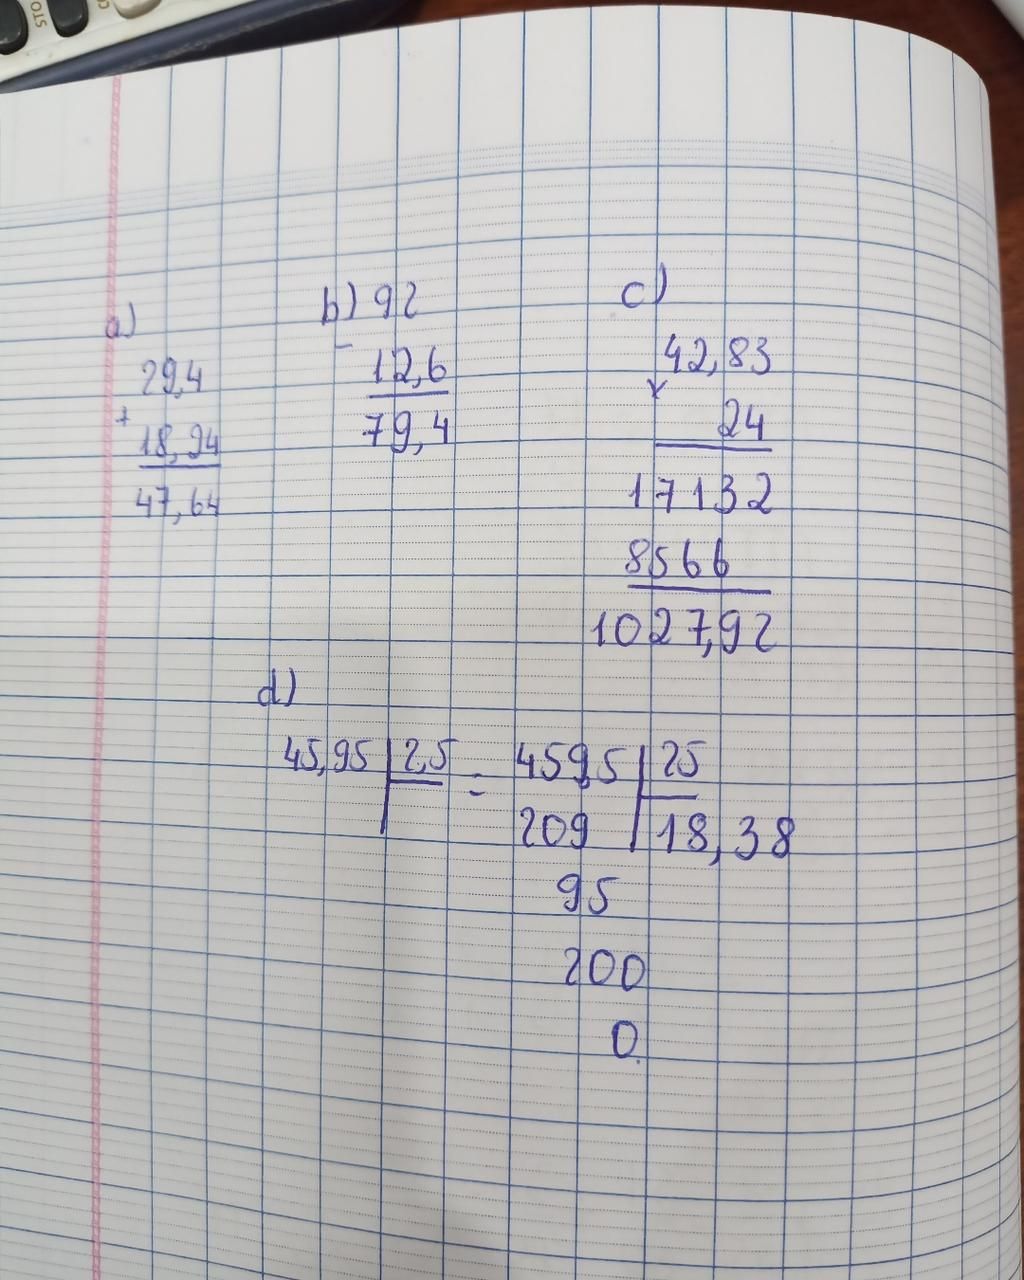 a)
29,4
+
18,94
47,64
b) 92
-
12,6
79,4
c)
42,83
x
24
17132
8566
1027,92
d)
45,95 | 2,5 = 459,5 | 25
209 18,38
95
200
0
STO